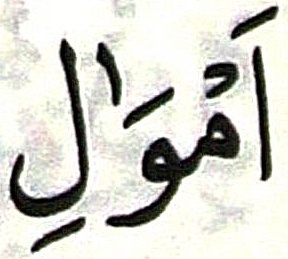 اَمْوَٰلِ